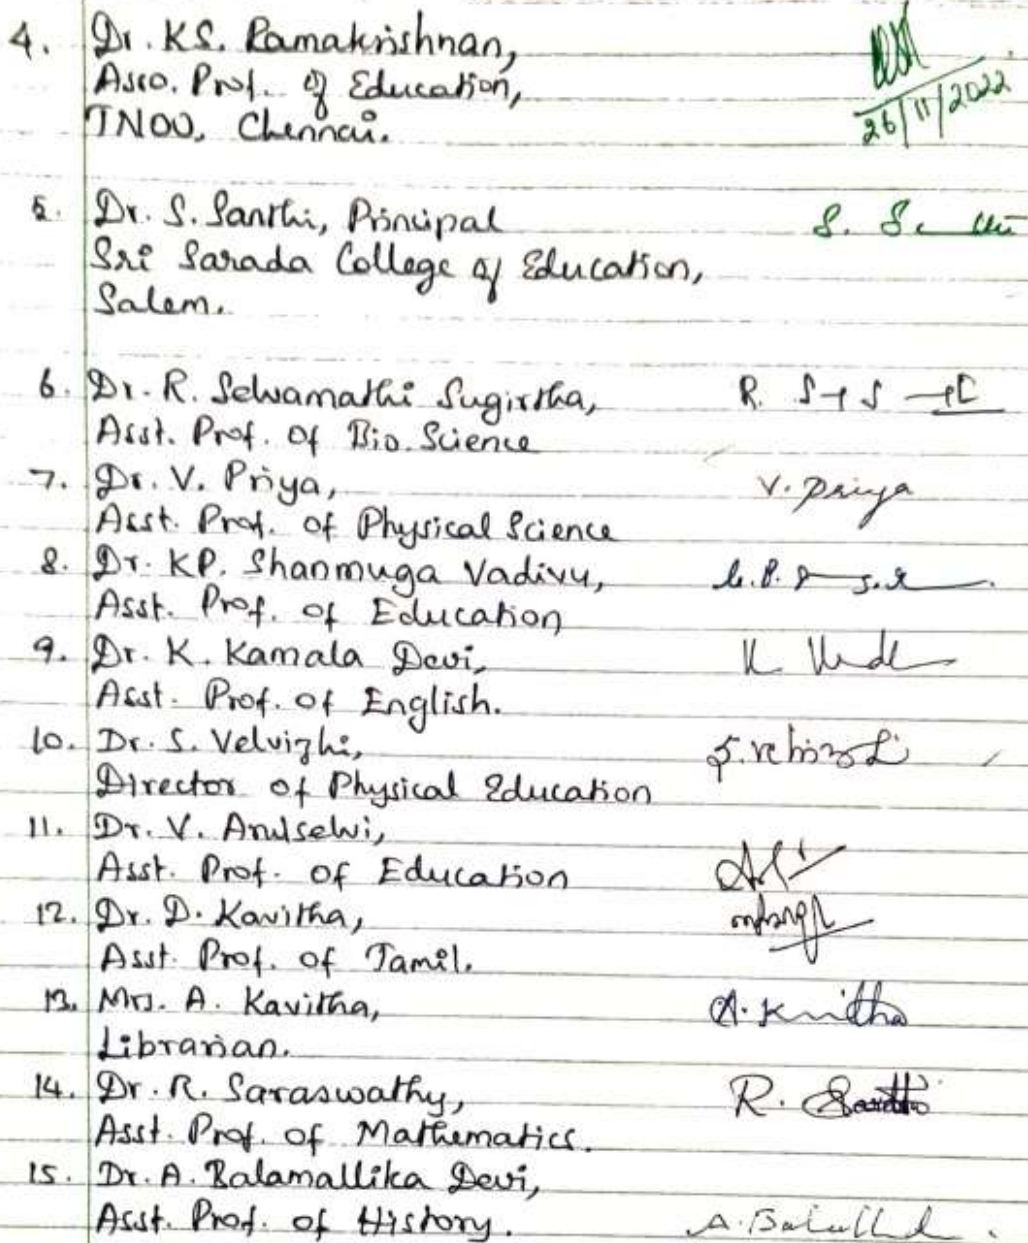 4. Dr. KS. Ramakrishnan,
Asso. Prof. of Education,
TNOU, Chennai.
26/11/2022
5. Dr. S. Santhi, Principal
Sri Sarada College of Education,
Salem.
6. Dr. R. Selvamathi Sugirtha,
Asst. Prof. Of Bio. Science
7. Dr. V. Priya, V. Priya
Asst. Prof. of Physical Science
8. Dr. KP. Shanmuga Vadivu,
Asst. Prof. of Education
9. Dr. K. Kamala Devi,
Asst. Prof. of English.
10. Dr. S. Velvizhi,
Director of Physical Education
11. Dr. V. Arulselvi,
Asst. Prof. of Education
12. Dr. D. Kavitha,
Asst. Prof. of Tamil.
13. Mrs. A. Kavitha,
Librarian.
14. Dr. R. Saraswathy,
Asst. Prof. of Mathematics.
15. Dr. A. Balamallika Devi,
Asst. Prof. of History.